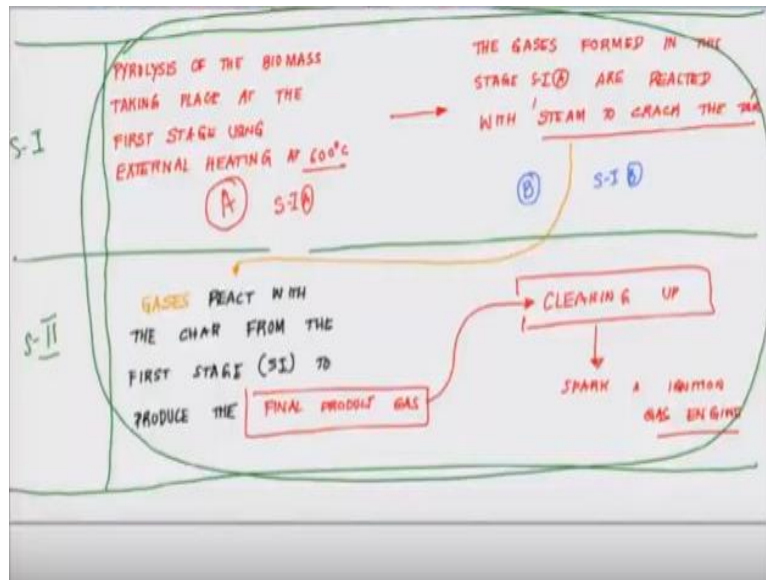 S-I
PYROLYSIS OF THE BIOMASS
TAKING PLACE AT THE
FIRST STAGE USING
EXTERNAL HEATING AT 600°C
A S-I A
THE GASES FORMED IN THE
STAGE S-I A ARE REACTED
WITH STEAM TO CRACK THE TAR
B S-I B
S-II
GASES REACT WITH
THE CHAR FROM THE
FIRST STAGE (SI) TO
PRODUCE THE FINAL PRODUCT GAS
CLEANING UP
SPARK IGNITION
GAS ENGINE